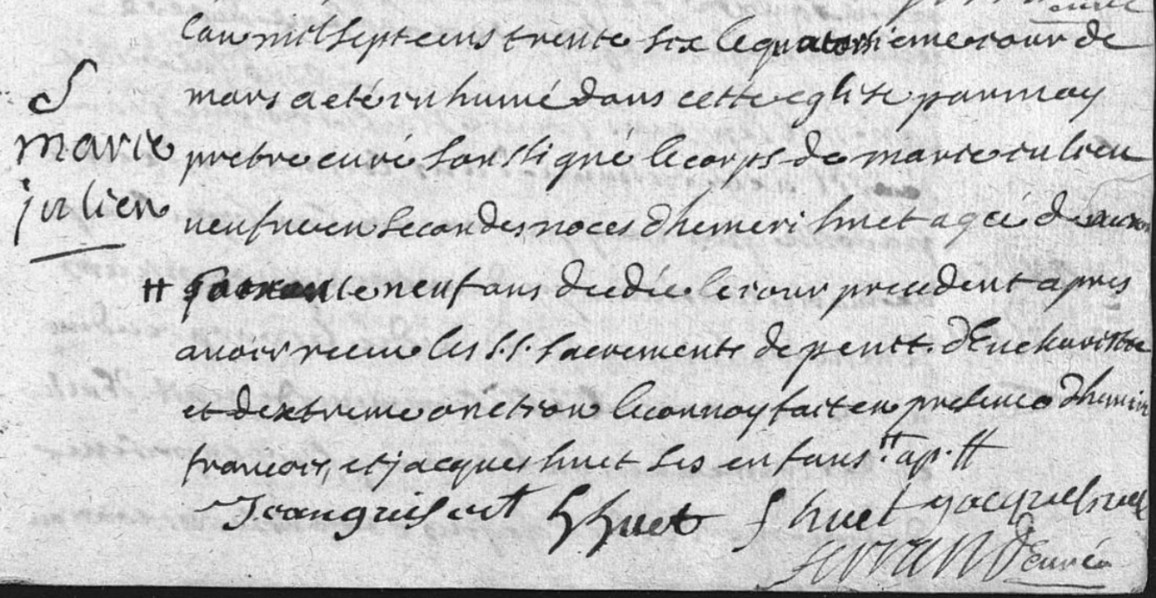 S
marie
julien
L'an mil sept cens trente six le quatorsieme iour de
mars a eté inhumé dans cette eglise par moy
prebre curé soussigné le corps de marie iulien
veufve en secondes noces d'hemeri huet agée d'
# te neuf ans decedée le iour precedent apres
avoir receu les S.S. sacrements de penit. d'Eucharistie
et dextreme onction le convoy fait en presence d'hemeri
francois, et jacques huet ses enfans # ap. #
Jean h huet f huet jacque huet
curé